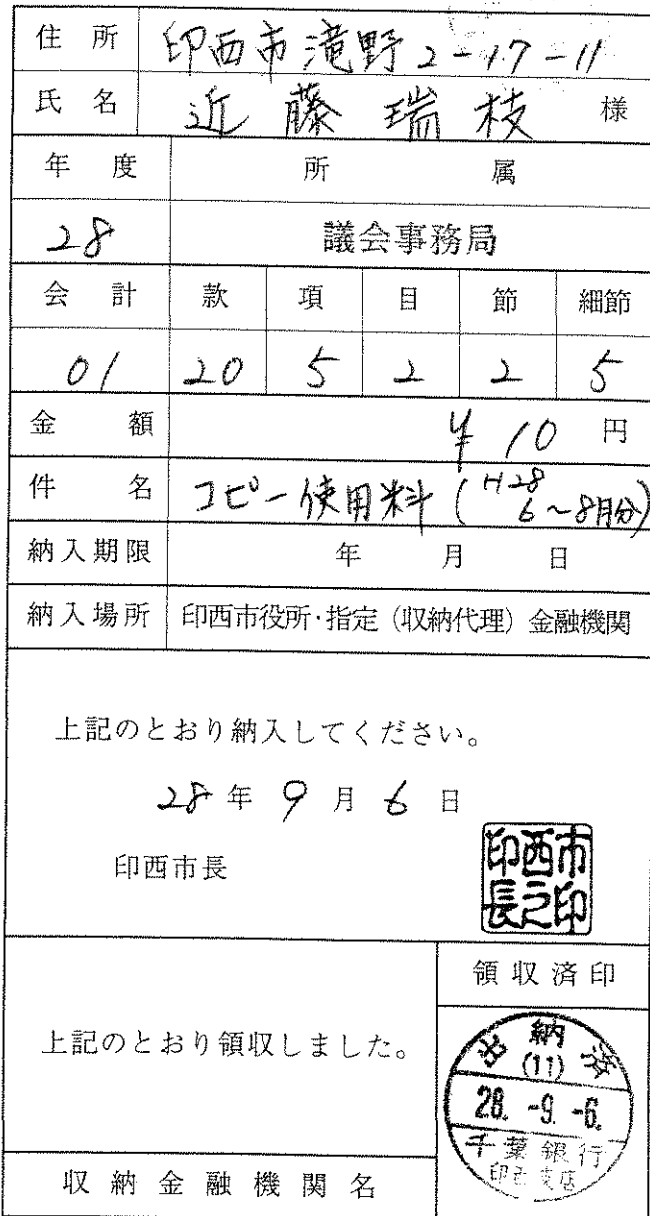 住所 印西市滝野2-17-11
氏名 近藤瑞枝 様
年度 所属
28 議会事務局
会計 款 項 目 節 細節
01 20 5 2 2 5
金額 ¥10円
件名 コピー使用料(H28 6~8月分)
納入期限 年 月 日
納入場所 印西市役所・指定(収納代理)金融機関
上記のとおり納入してください。
28年9月6日
印西市長
印西市長之印
領収済印
上記のとおり領収しました。
出納済
(11)
28.-9.-6.
千葉銀行
印西支店
収納金融機関名